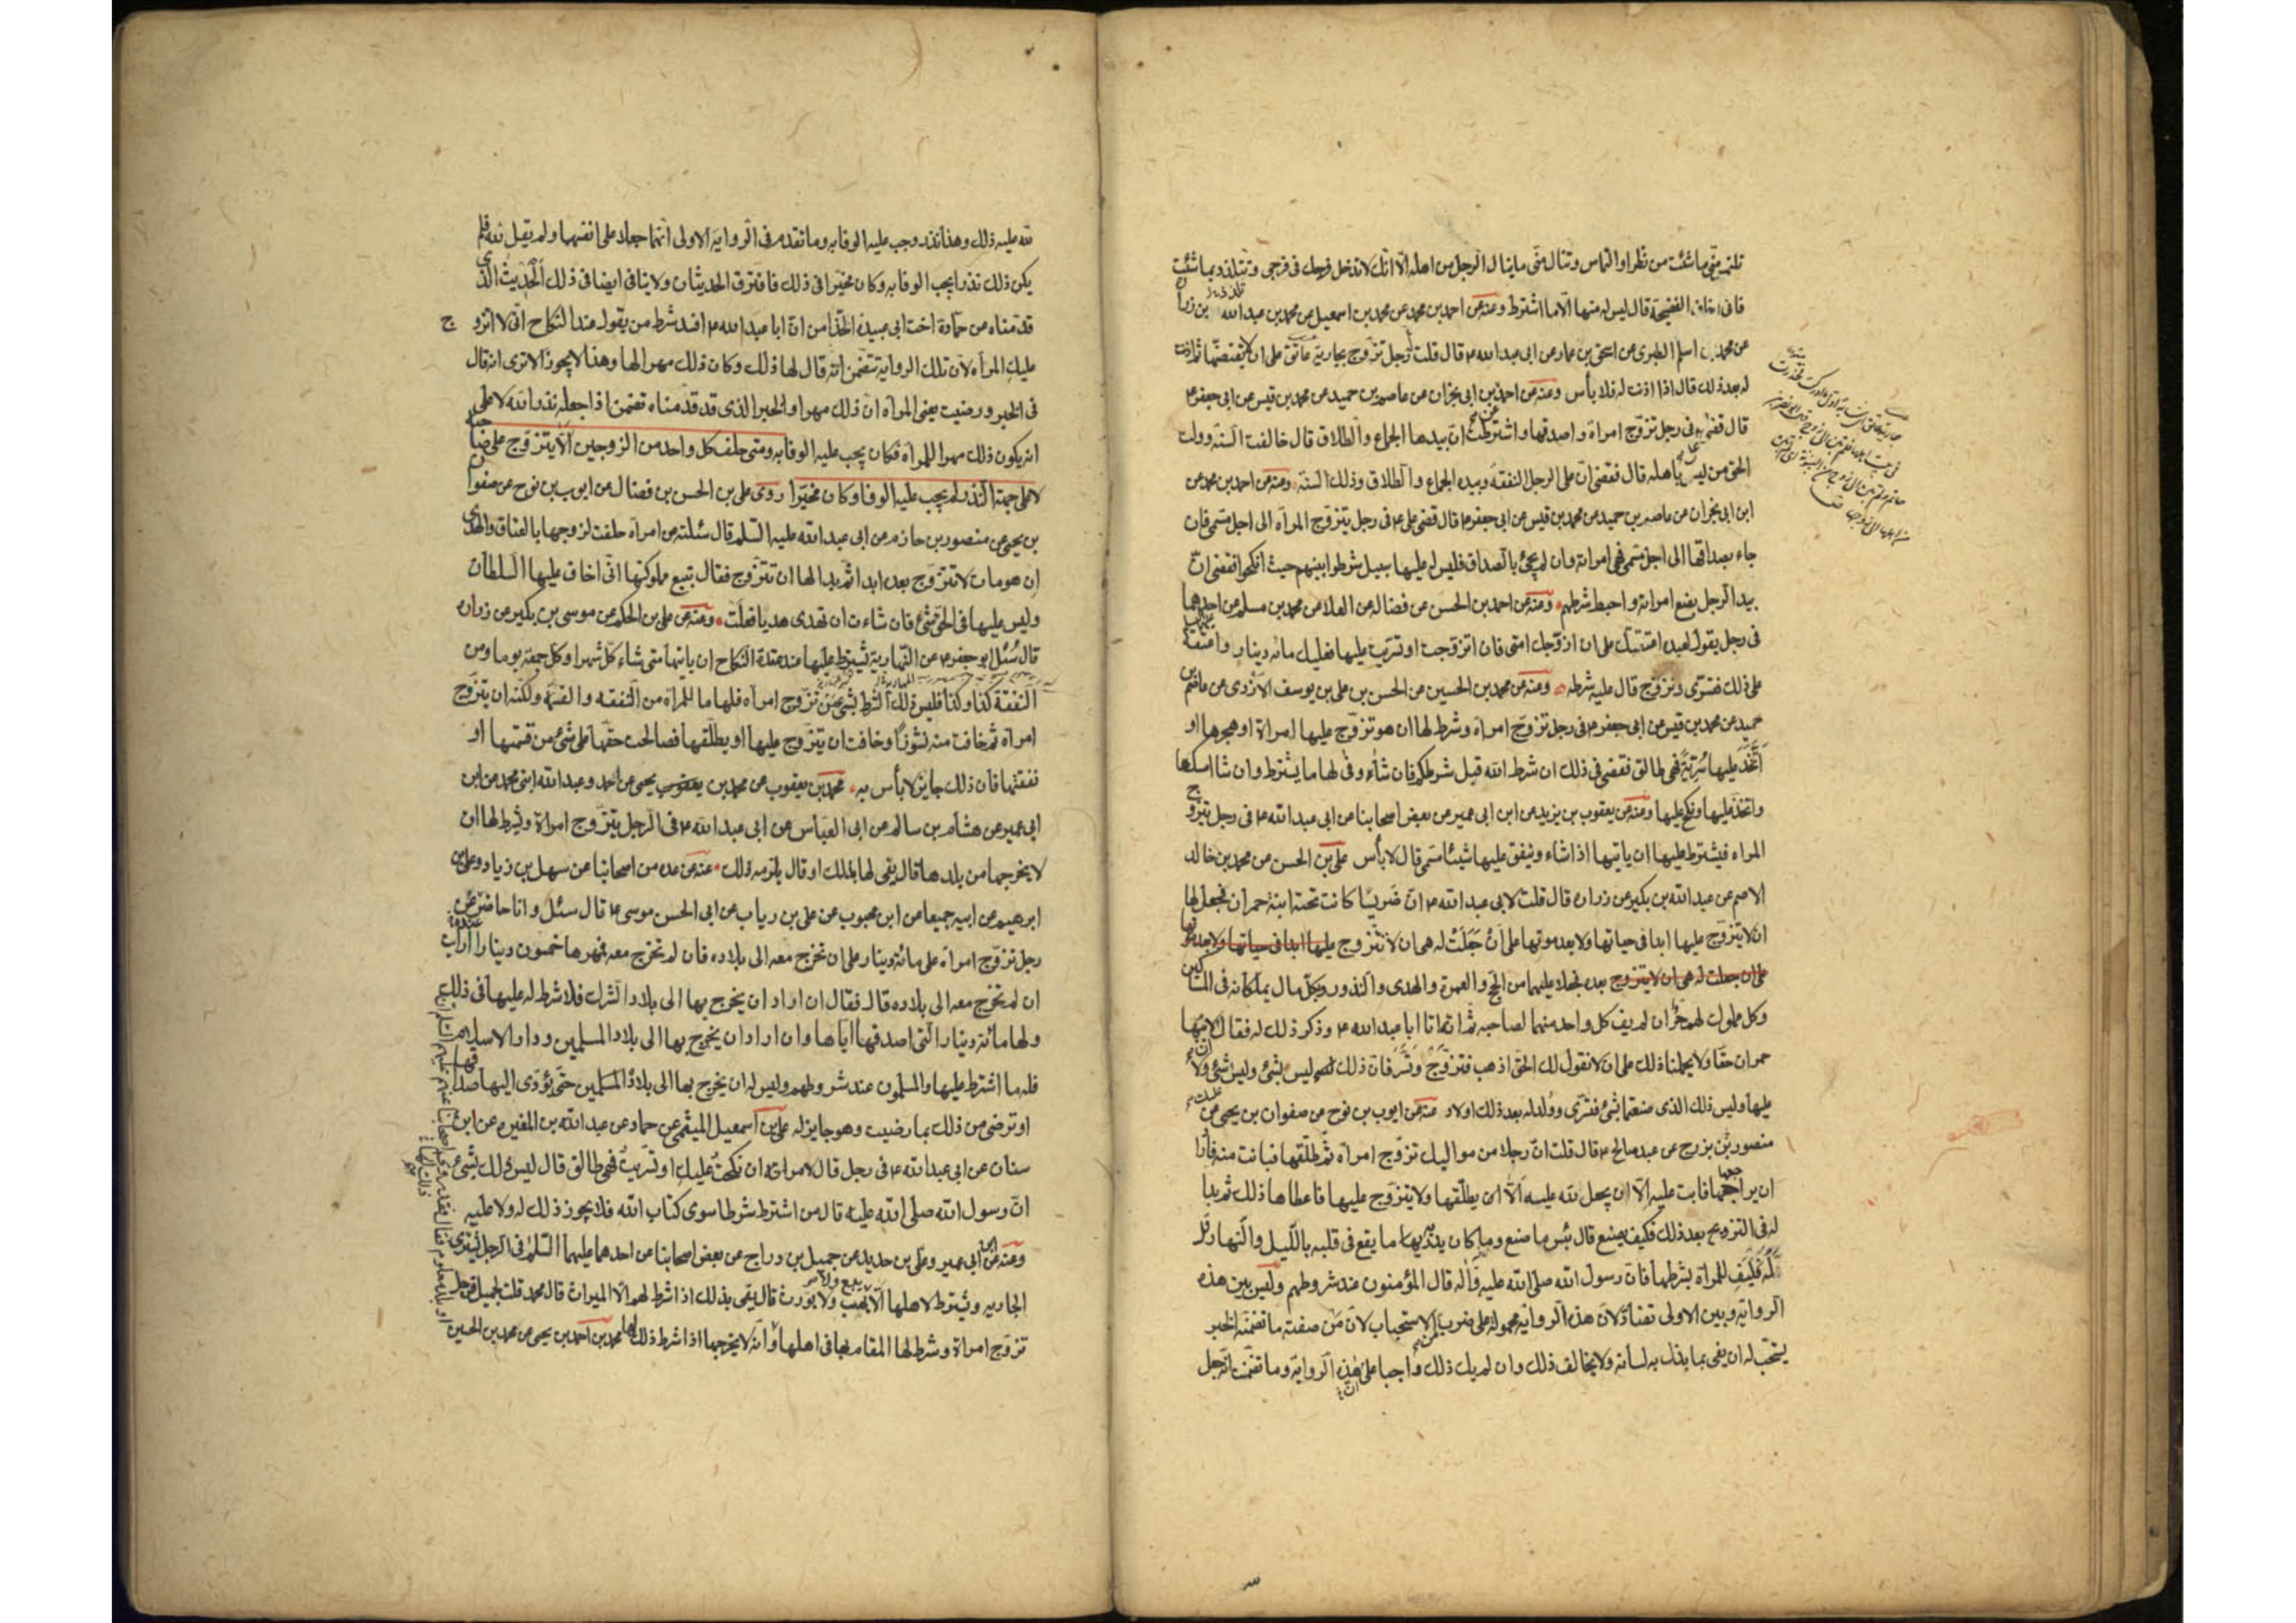 تلتمس منّي ما شئت من نظر او التماس وتنال منّي ما ينال الرجل من اهله الّا انك لا تدخل فرجك في فرجي وتتلذذ بما شئت
فانى اخاف الفضيحة قال ليس له منها الّا ما اشترط ومنه عن احمد بن محمد عن محمد بن اسمعيل عن محمد بن عبدالله بن زرارة
عن محمد بن اسلم الطبرى عن اسحق بن عمار عن ابى عبدالله ع قال قلت رجل تزوج بجارية عاتق على ان لا يقتضّها ثم اذنت
له بعد ذلك قال اذا اذنت له فلا بأس ومنه عن احمد بن ابى نجران عن عاصم بن حميد عن محمد بن قيس عن ابى جعفر ع
قال قضى في رجل تزوّج امراة واصدقها واشترطت انّ بيدها الجماع والطلاق قال خالفت السنة وولت
الحق من ليس باهله قال فقضى انّ على الرجل النفقة وبيده الجماع والطلاق وذلك السنة ومنه عن احمد بن محمد عن
ابن ابى نجران عن عاصم بن حميد عن محمد بن قيس عن ابى جعفر ع قال قضى على ع فى رجل يتزوّج المرأة الى اجل مسمى فان
جاء بصداقها الى اجل مسمى فهى امراته وان لم يجئ بالصداق فليس له عليها سبيل شرطوا بينهم حيث انكحوا فقضى انّ
بيد الرجل بضع امراته واحبط شرطهم ومنه عن احمد بن الحسن عن فضاله عن العلا عن محمد بن مسلم عن احدهما
فى رجل يقول لعبده اعتقتك على ان ازوّجك امتى فان تزوجت او تسريت عليها فعليك مائة دينار واعتقه
على ذلك فتسرّى وتزوّج قال عليه شرطه ومنه عن محمد بن الحسين عن الحسن بن على بن يوسف الازدى عن عاصم بن
حميد عن محمد بن قيس عن ابى جعفر ع فى رجل تزوّج امراة وشرط لها ان هو تزوّج عليها امراة او هجرها او
اتّخذ عليها سرّيّة فهى طالق فقضى فى ذلك ان شرط الله قبل شرطكم فان شاء وفى لها ما يشترط وان شا امسكها
واتخذ عليها ونكح عليها ومنه عن يعقوب بن يزيد عن ابن ابى عمير عن بعض اصحابنا عن ابى عبدالله ع فى رجل يتزوّج
المراه فيشترط عليها ان ياتيها اذا شاء وينفق عليها شيئا مسمى قال لا بأس على بن الحسن عن محمد بن خالد
الاصم عن عبدالله بن بكير عن زرارة قال قلت لابى عبدالله ع انّ ضريسا كانت تحته ابنة حمران فجعل لها
ان لا يتزوّج عليها ابدا فى حياتها ولا بعد موتها على أن جعلت له هى ان لا تتزوج عليها ابدا فى حياتها ولا بعد موتها
على ان جعلت له هى ان لا يتزوج بعده فجعلا عليهما من الحج والعمرة والهدى والنذور وكل مال يملكانه فى المساكين
وكل مملوك لهم حرّ ان لم يف كل واحد منهما لصاحبه ثم انه اتا ابا عبدالله ع وذكر ذلك له فقال ان لابنة
حمران حقا ولا يحملنا ذلك على ان لا نقول لك الحق اذهب فتزوّج وتسرّ فان ذلك ليس بشئ وليس شئ ولا
عليها وليس ذلك الذى صنعتما بشئ فتسرّى وولد له بعد ذلك اولاد عنه عن ايوب بن نوح عن صفوان بن يحيى عن
منصور بن بزرج عن عبد صالح ع قال قلت انّ رجلا من مواليك تزوّج امراة ثم طلّقها فبانت منه فاراد
ان يراجعها فابت عليه الّا ان يجعل لله عليه الّا ان يطلّقها ولا يتزوّج عليها فاعطاها ذلك ثم بدا
له فى التزويج بعد ذلك فكيف يصنع قال بئس ما صنع وما كان يدريه ما يقع فى قلبه بالليل والنهار قل
له فليف للمراة بشرطها فان رسول الله صلى الله عليه وآله قال المؤمنون عند شروطهم وليس بين هذه
الرواية وبين الاولى تضادّ لان هذه الرواية محموله على ضرب من الاستحباب لانّ من صفته ما تضمّنه الخبر
يستحبّ له ان يفى بما بذل به لسانه ولا يخالف ذلك وان لم يك ذلك واجبا على ان هذه الرواية وما تضمّنت انّه جعل
لله عليه ذلك وهذا نذر وجب عليه الوفا به وما تقدم فى الرواية الاولى انّهما جعلا على انفسهما ولم يقل لله فلم
يكن ذلك نذرا يجب الوفا به وكان مخيّرا فى ذلك فافترق الحديثان ولا ينافى ايضا فى ذلك الحديث الذى
قدمناه من حمّادة اخت ابى عبيدة الحذّا من انّ ابا عبدالله ع افسد شرط من يقول عند النكاح انّى لا اتزوج
عليك المرأه لانّ تلك الرواية تتضمّن انّه قال لها ذلك وكان ذلك مهرا لها وهذا لا يجوز الا ترى انه قال
فى الخبر ورضيت يعنى المرأه انّ ذلك مهرا والخبر الذى قد قدّمناه تضمن اذا جعله نذرا لله لا على
انه يكون ذلك مهرا للمرأه فكان يجب عليه الوفا به ومتى حلف كل واحد من الزوجين الّا يتزوّج على صاحبه
لا على جهة النذر لم يجب عليه الوفا وكان مخيّرا روى على بن الحسن بن فضال عن ايوب بن نوح عن صفوان
بن يحيى عن منصور بن حازم عن ابى عبدالله عليه السّلم قال سئلته عن امراة حلفت لزوجها بالعتاق والهدى
ان هو مات لا تتزوّج بعده ابدا ثم بدا لها ان تتزوّج فقال تبيع مملوكتها انّى اخاف عليها السلطان
وليس عليها فى الحق شئ فان شاءت ان تهدى هديا فعلت ومنه عن على بن الحكم عن موسى بن بكير عن زرارة
قال سئل ابو جعفر ع عن النهارية يشترط عليها عند عقدة النكاح ان ياتيها متى شاء كلّ شهر او كل جمعة يوما ومن
النفقة كذا وكذا فليس ذلك الشرط بشئ من تزوّج امرأه فلها ما للمرأة من النفقه والقسمة ولكنه ان يتزوّج
امراة ثم خافت منه نشوزا وخافت ان يتزوّج عليها او يطلّقها فصالحت حقّها على شئ من قسمتها او
نفقتها فان ذلك جايز لا بأس به محمد بن يعقوب عن محمد بن يعقوب يحيى عن احمد وعبدالله ابنى محمد عن ابن
ابى عمير عن هشام بن سالم عن ابى العبّاس عن ابى عبدالله ع فى الرجل يتزوّج امراة ويشرط لها ان
لا يخرجها من بلدها قال يفى لها بذلك او قال يلزمه ذلك عنه عن عده من اصحابنا عن سهل بن زياد وعلى بن
ابرهيم عن ابيه جميعا عن ابن محبوب عن على بن رياب عن ابى الحسن موسى ع قال سئل وانا حاضر عن
رجل تزوّج امرأة على مائة دينار على ان تخرج معه الى بلاده فان لم تخرج معه فمهرها خمسون دينارا ارأيت
ان لم تخرج معه الى بلاده قال فقال ان اراد ان يخرج بها الى بلاد الشرك فلا شرط له عليها فى ذلك
ولها مائة دينار التى اصدقها اياها وان اراد ان يخرج بها الى بلاد المسلمين ودار الاسلام
فله ما اشترط عليها والمسلمون عند شروطهم وليس له ان يخرج بها الى بلاد المسلمين حتّى يؤدّى اليها صداقها
او ترضى من ذلك بما رضيت وهو جايز له على بن اسمعيل الميثمى عن حماد عن عبدالله بن المغيره عن ابن
سنان عن ابى عبدالله ع فى رجل قال لامراته ان نكحت عليك او تسرّيت فهى طالق قال ليس ذلك بشئ
انّ رسول الله صلى الله عليه قال من اشترط شرطا سوى كتاب الله فلا يجوز ذلك له ولا عليه
ومنه عن ابن ابى عمير وعلى بن حديد عن جميل بن دراج عن بعض اصحابنا عن احدهما عليهما السّلم فى الرجل يشترى
الجاريه ويشترط لاهلها الّا يبيع ولا يهب ولا يورث قال يفى بذلك اذا شرط لهم الّا الميراث قال محمد قلت لجميل فرجل
تزوّج امراة وشرط لها المقام بها فى اهلها او
انّه لا يخرجها اذا شرط ذلك لها محمد بن احمد بن يحيى عن محمد بن الحسين